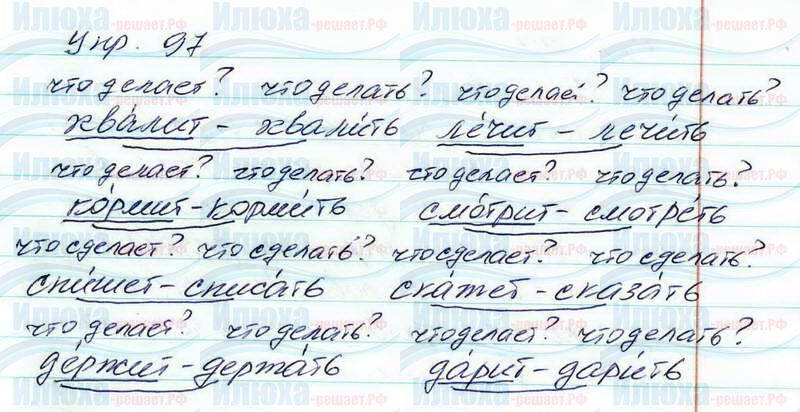 Упр. 97
что делает? что делать? что делает? что делать?
хва́лит – хвали́ть ле́чит – лечи́ть
что делает? что делать? что делает? что делать?
ко́рмит – корми́ть смо́трит – смотре́ть
что сделает? что сделать? что сделает? что сделать?
спи́шет – списа́ть ска́жет – сказа́ть
что делает? что делать? что делает? что делать?
де́ржит – держа́ть да́рит – дари́ть